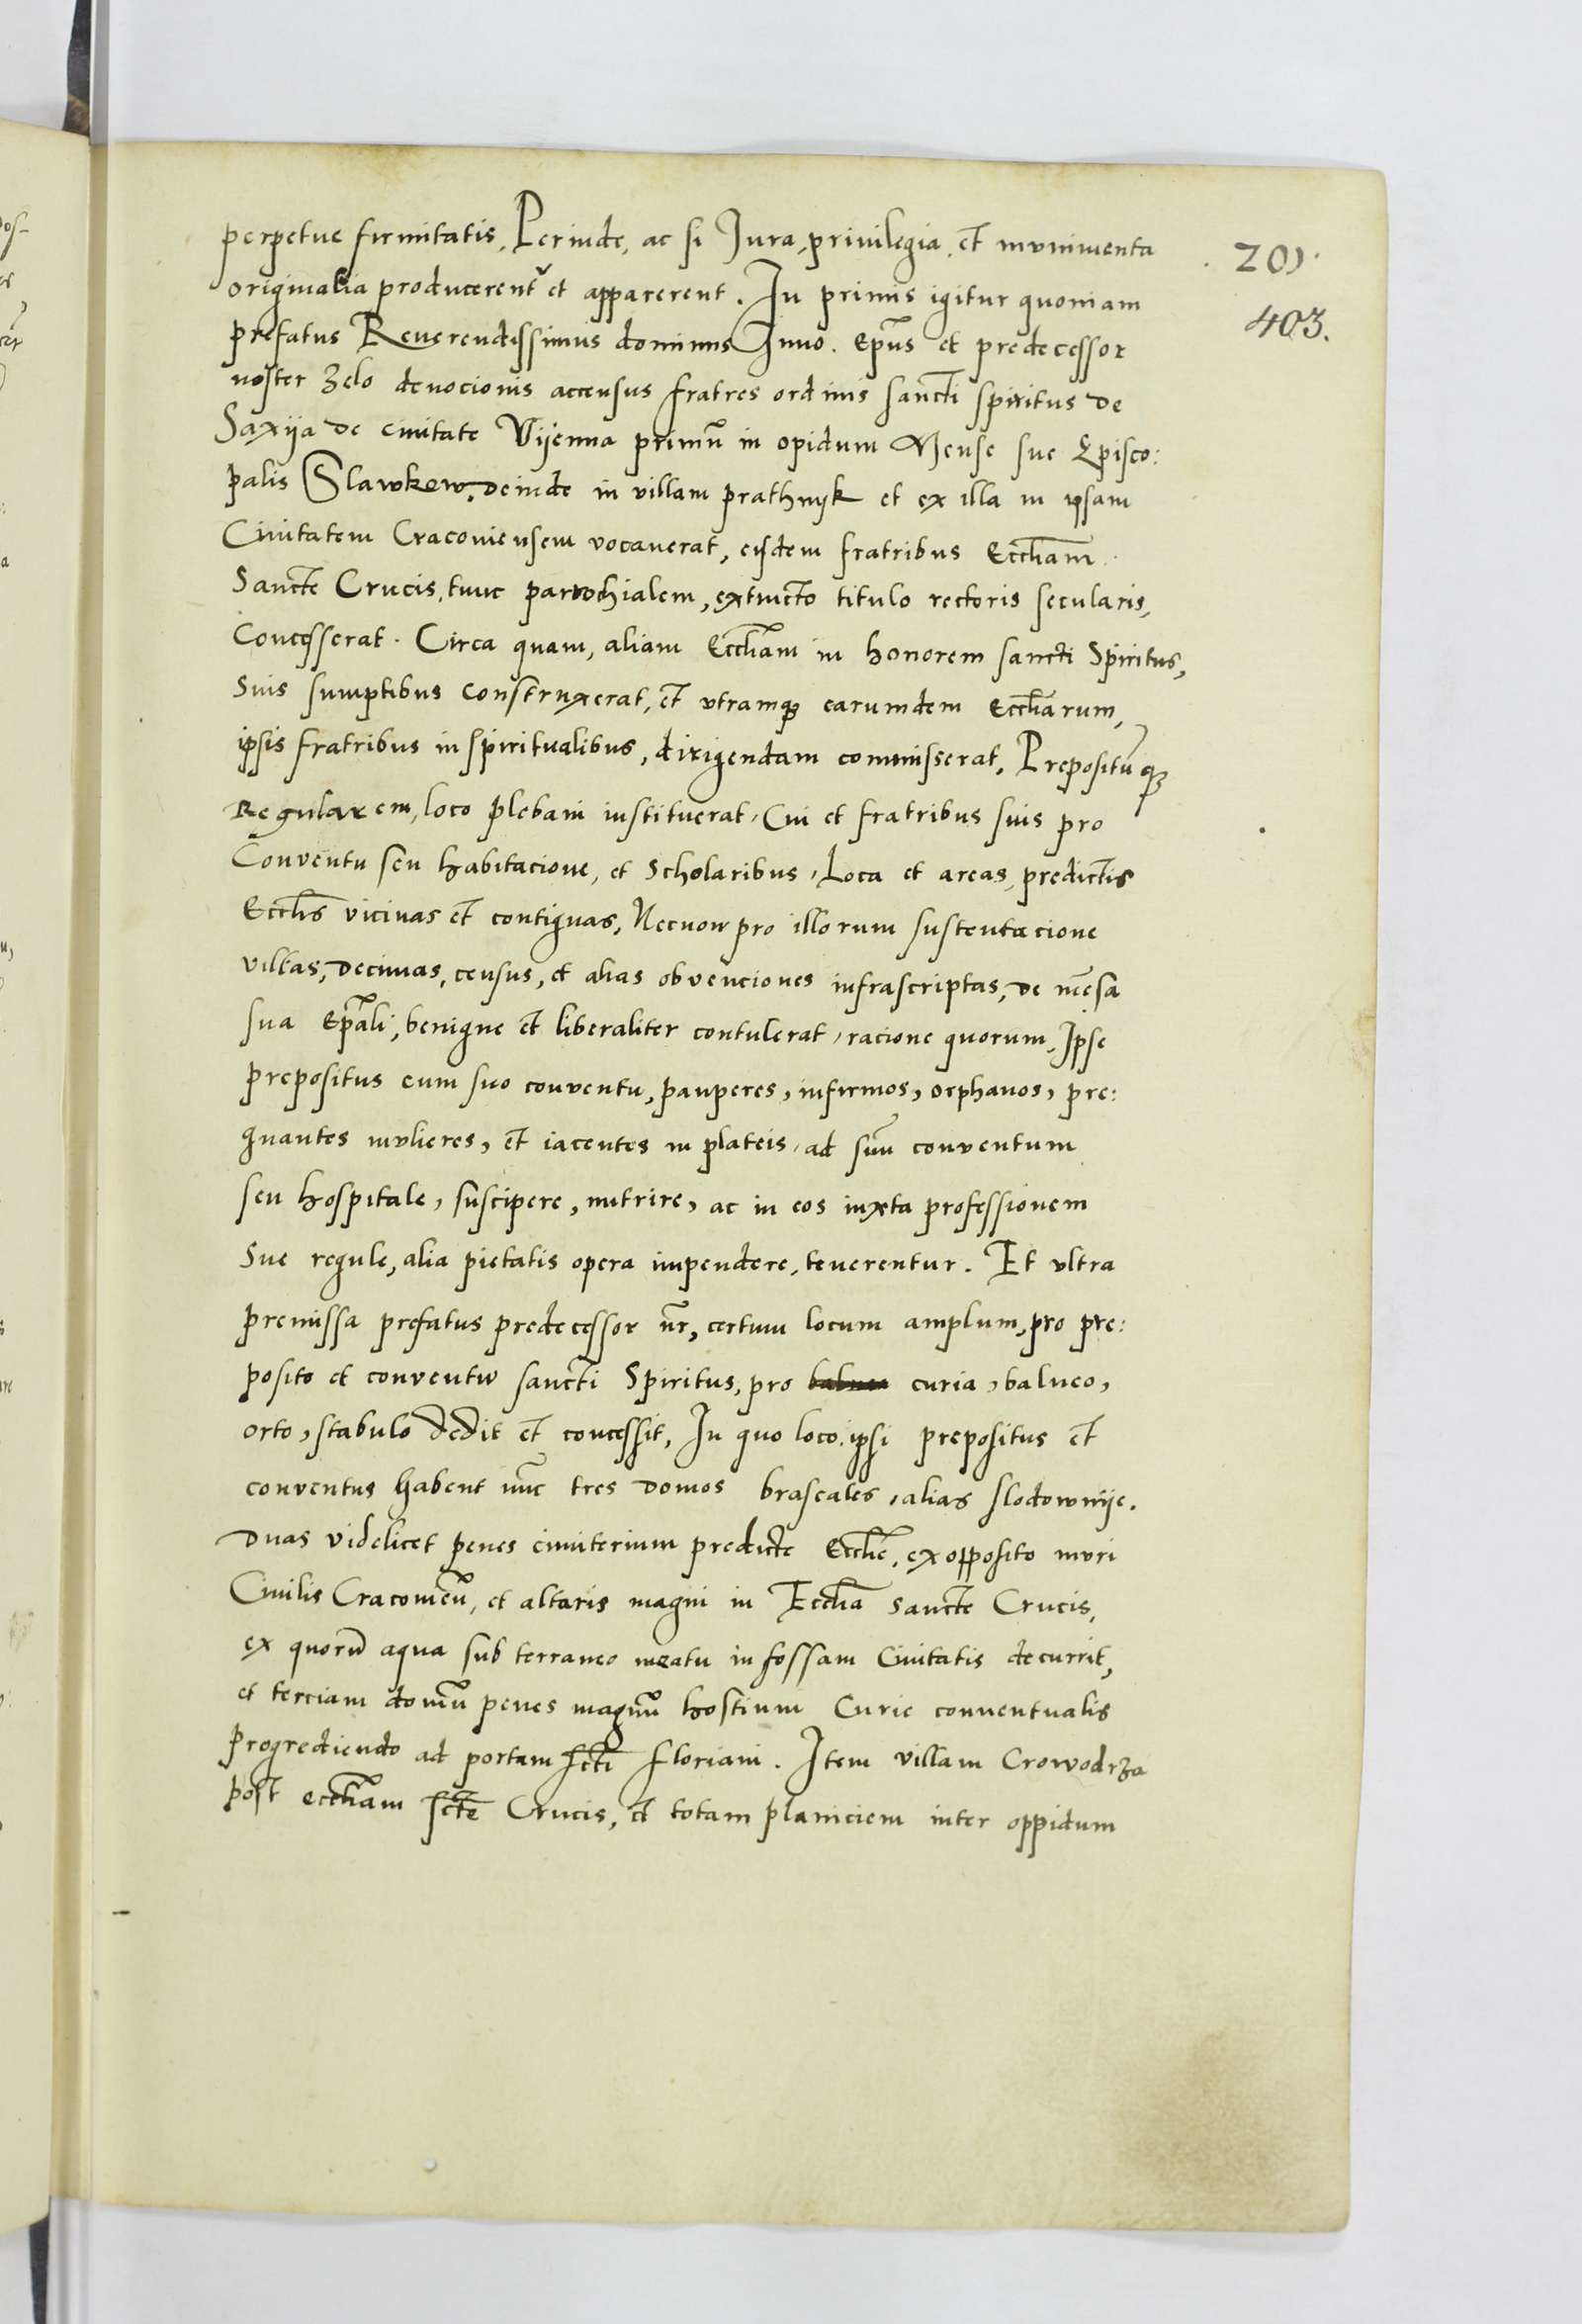 perpetue firmitatis, Perinde, ac si Jura, privilegia, et munimenta
201
originalia producerent͛ et apparerent. In primis igitur quoniam
403.
prefatus Reverendissimus dominus Iuuo. Ep̃us et predecessor
noster zelo deuocionis accensus fratres ordinis sancti spiritus de
Saxija de ciuitate Vijenna primũ in opidum Mense sue Episco:
palis Slawkow, deinde in villam prathnijk et ex illa in ipsam
Ciuitatem Cracouiensem vocauerat, eisdem fratribus Eccłiam
Sancte Crucis, tunc parrochialem, extincto titulo rectoris secularis,
Concesserat. Circa quam, aliam Eccłiam in honorem sancti Spiritus,
suis sumptibus construxerat, et vtramqꝫ earumdem Eccłiarum,
ipsis fratribus in spiritualibus, dirigendam commisserat, Prepositũqꝫ
Regularem, loco plebani instituerat, Cui et fratribus suis pro
Conventu seu habitacione, et scholaribus, Loca et areas, predictis
Eccłis vicinas et contiguas, Necnon pro illorum sustentacione
villas, decimas, census, et alias obvenciones infrascriptas, de mẽsa
sua Ep̃ali, benigne et liberaliter contulerat, racione quorum, Ipse
prepositus cum suo conventu, pauperes, infirmos, orphanos, pre:
gnantes mulieres, et iacentes in plateis, ad suũ conventum
seu hospitale, suscipere, nutrire, ac in eos iuxta professionem
sue regule, alia pietatis opera impendere, tenerentur. Et ultra
premissa prefatus predecessor nr̃, certum locum amplum, pro pre:
posito et conventu sancti Spiritus, pro balnea curia, balneo,
orto, stabulo dedit et concessit, In quo loco ipsi prepositus et
conventus habent nũc tres domos braseales, alias slodownije.
Duas videlicet penes cimiterium predicte Eccłie, ex opposito muri
Ciuilis Cracouieñ, et altaris magni in Eccłia sancte Crucis,
ex quorũ aqua sub terraneo meatu in fossam Ciuitatis decurrit,
et terciam domũ penes magnũ hostium Curie conventualis
progrediendo ad portam scti Floriani. Item villam Crowodrza
post eccłiam scte Crucis, et totam planiciem inter oppidum